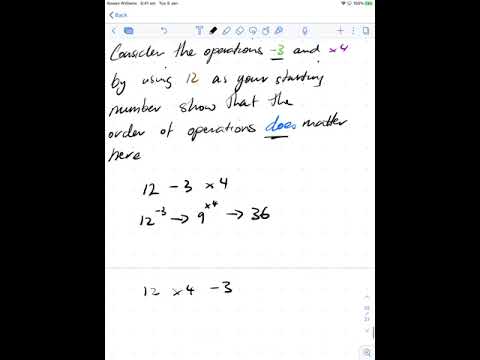 Rowan Williams 9:41 am Tue 5 Jan
100%
Back
Consider the operations -3 and ×4
by using 12 as your starting
number show that the
order of operations does matter
here
12 -3 ×4
12⁻³ → 9ˣ⁴ → 36
12 ×4 -3